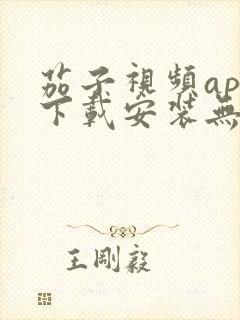 茄子視頻ap
下載安装無
王剛毅